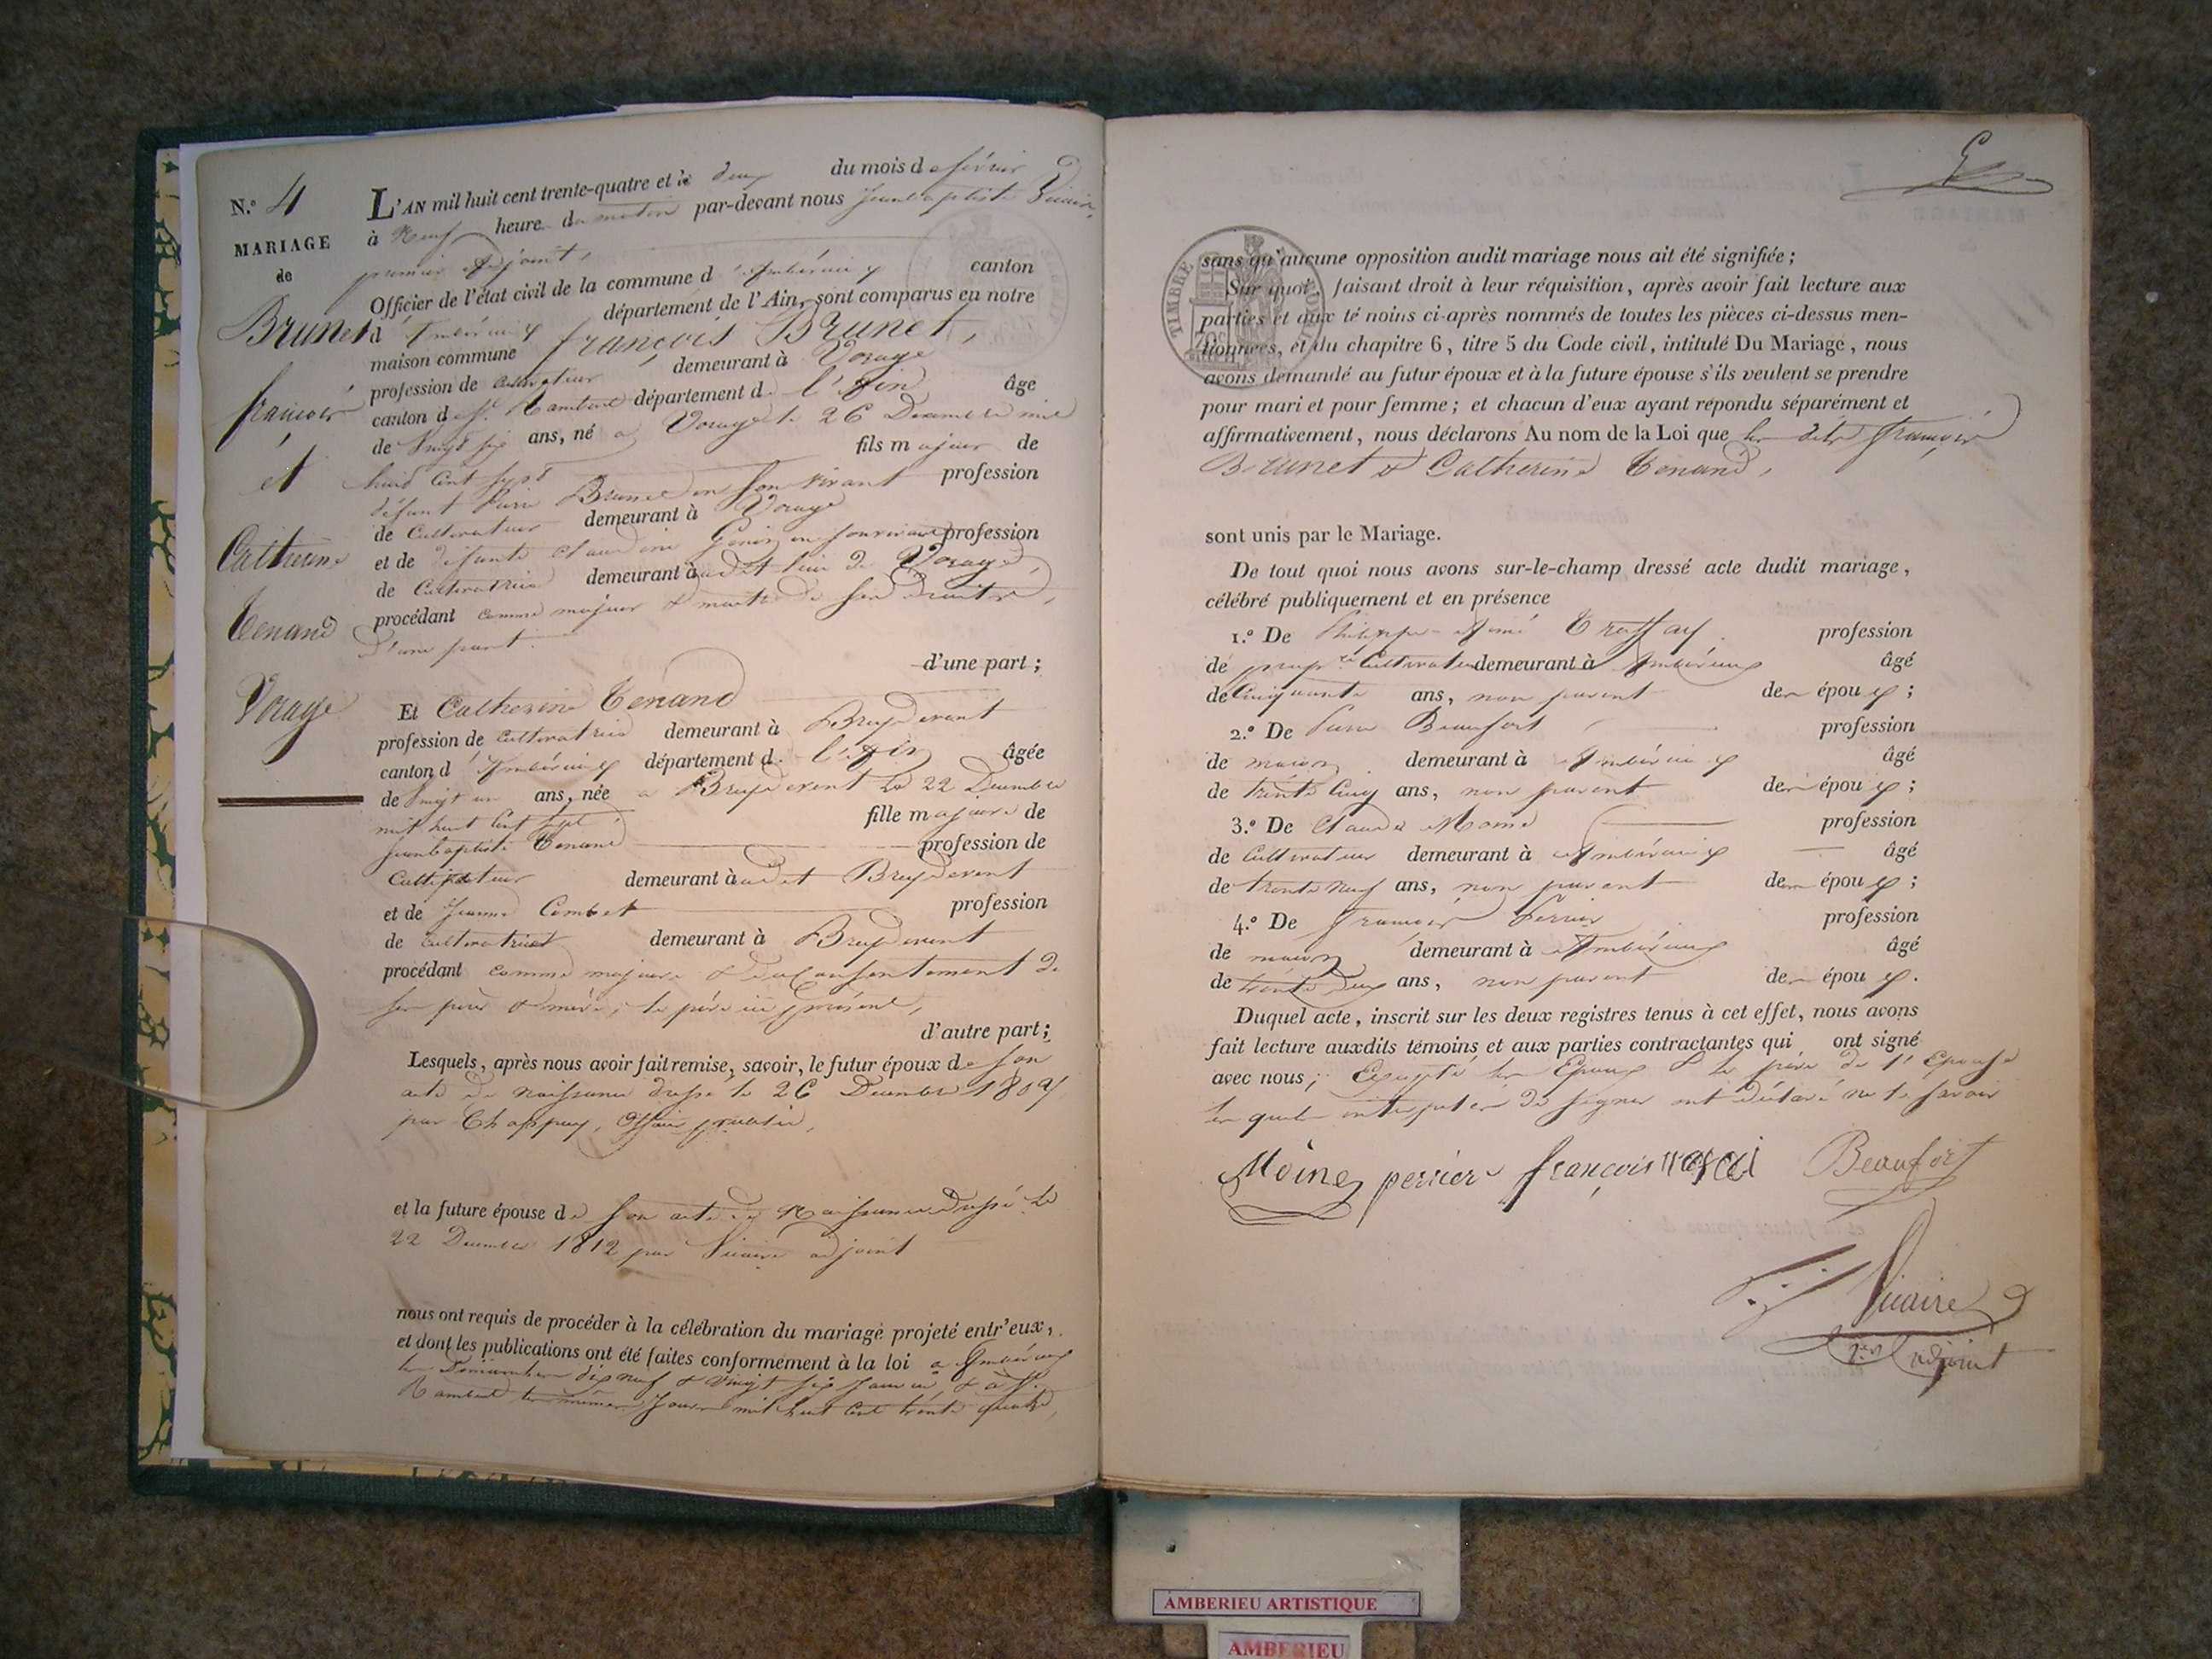 N.º 4
MARIAGE
de
Brunet
françois
et
Catherine
Tenand
Voraye
L'AN mil huit cent trente-quatre et le deux du mois de février
à Neuf heure du matin par-devant nous Jeanbaptiste Vicaire,
premier adjoint,
Officier de l'état civil de la commune d'Ambérieux canton
d'Ambérieux département de l'Ain, sont comparus en notre
maison commune françois Brunet,
profession de cultivateur demeurant à Voraye
canton de St. Rambert département de l'Ain âge
de Vingt six ans, né à Voraye le 26 Decembre mil
huit cent sept fils majeur de
défunt Pierre Brunet en son vivant profession
de Cultivateur demeurant à Voraye
et de défunte Claudine Génin en son vivant profession
de Cultivatrice demeurant audit lieu de Voraye,
procédant comme majeur & maitre de ses droits,
D'une part.
d'une part ;
Et Catherine Tenand
profession de Cultivatrice demeurant à Breydevent
canton d'Ambérieux département de l'Ain âgée
de Vingt un ans, née à Breydevent le 22 Decembre
mil huit cent fille majeure de
Jeanbaptiste Tenand profession de
Cultivateur demeurant audit Breydevent
et de Jeanne Combet profession
de cultivatrice demeurant à Breydevent
procédant comme majeure & du Consentement de
ses père & mère, le père ici présent,
d'autre part ;
Lesquels, après nous avoir fait remise, savoir, le futur époux de son
acte de naissance dressé le 26 Decembre 1807
par Chappuy, officier public,
et la future épouse de son acte de Naissance dressé le
22 Decembre 1812 par Vicaire adjoint
nous ont requis de procéder à la célébration du mariage projeté entr'eux,
et dont les publications ont été faites conformément à la loi à Ambérieux
les Dimanches dix neuf & vingt six Janvier, & à St.
Rambert les mêmes Jours mil huit cent trente quatre,
sans qu'aucune opposition audit mariage nous ait été signifiée ;
Sur quoi, faisant droit à leur réquisition, après avoir fait lecture aux
parties et aux témoins ci-après nommés de toutes les pièces ci-dessus men-
tionnées, et du chapitre 6, titre 5 du Code civil, intitulé Du Mariage, nous
avons demandé au futur époux et à la future épouse s'ils veulent se prendre
pour mari et pour femme ; et chacun d'eux ayant répondu séparément et
affirmativement, nous déclarons Au nom de la Loi que les dits françois
Brunet & Catherine Tenand,
TIMBRE ROYAL
sont unis par le Mariage.
De tout quoi nous avons sur-le-champ dressé acte dudit mariage,
célébré publiquement et en présence
1.º De Philippe Aimé profession
de propre Cultivateur demeurant à Ambérieux âgé
de Cinquante ans, non parent des époux ;
2.º De Pierre Beaufort profession
de maçon demeurant à Ambérieux âgé
de trente Cinq ans, non parent des époux ;
3.º De Claude Moine profession
de Cultivateur demeurant à Ambérieux âgé
de trente neuf ans, non parent des époux ;
4.º De françois Perrier profession
de maçon demeurant à Ambérieux âgé
de trente deux ans, non parent des époux.
Duquel acte, inscrit sur les deux registres tenus à cet effet, nous avons
fait lecture auxdits témoins et aux parties contractantes qui ont signé
avec nous ; Excepté les Epoux & le père de l'Epouse
les quels interpeler de signer ont déclaré ne le savoir
Moine perrier françois Beaufort
Vicaire
1er adjoint
AMBERIEU ARTISTIQUE
AMBERIEU